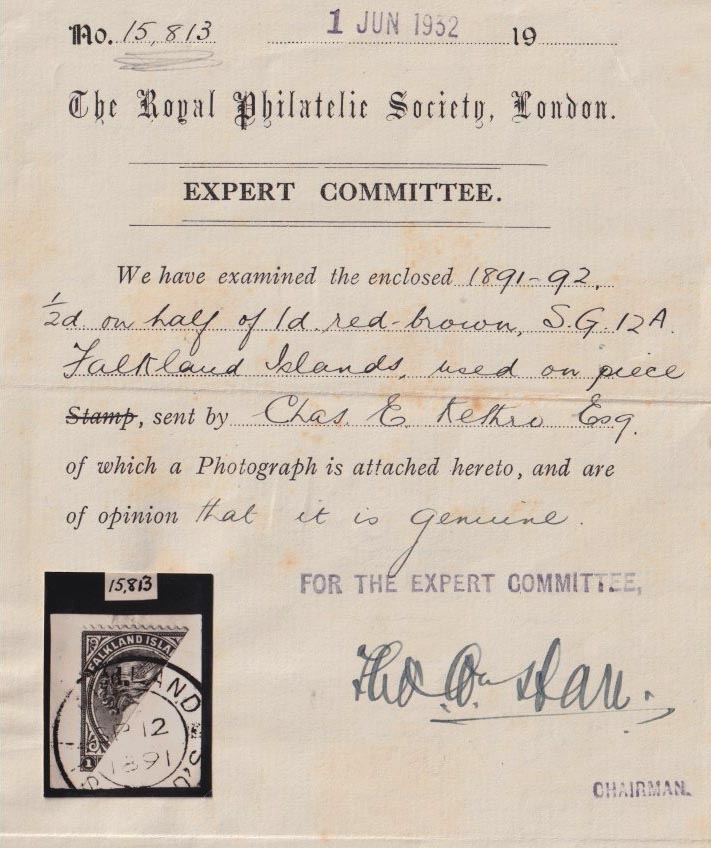 No. 15,813 1 JUN 1932 19
The Royal Philatelic Society, London.
EXPERT COMMITTEE.
We have examined the enclosed 1891-92,
½d on half of 1d. red-brown, S.G. 12A.
Falkland Islands, used on piece
Stamp, sent by Chas. E. Esq.
of which a Photograph is attached hereto, and are
of opinion that it is genuine.
15,813
FOR THE EXPERT COMMITTEE,
FALKLAND ISLA
LAND
12
1891
1
CHAIRMAN.